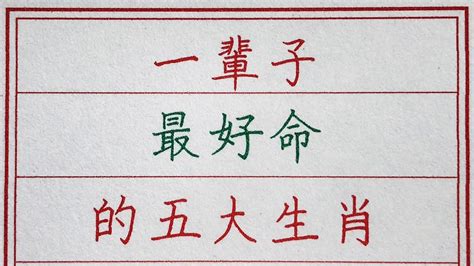 一輩子
最好命
的五大生肖